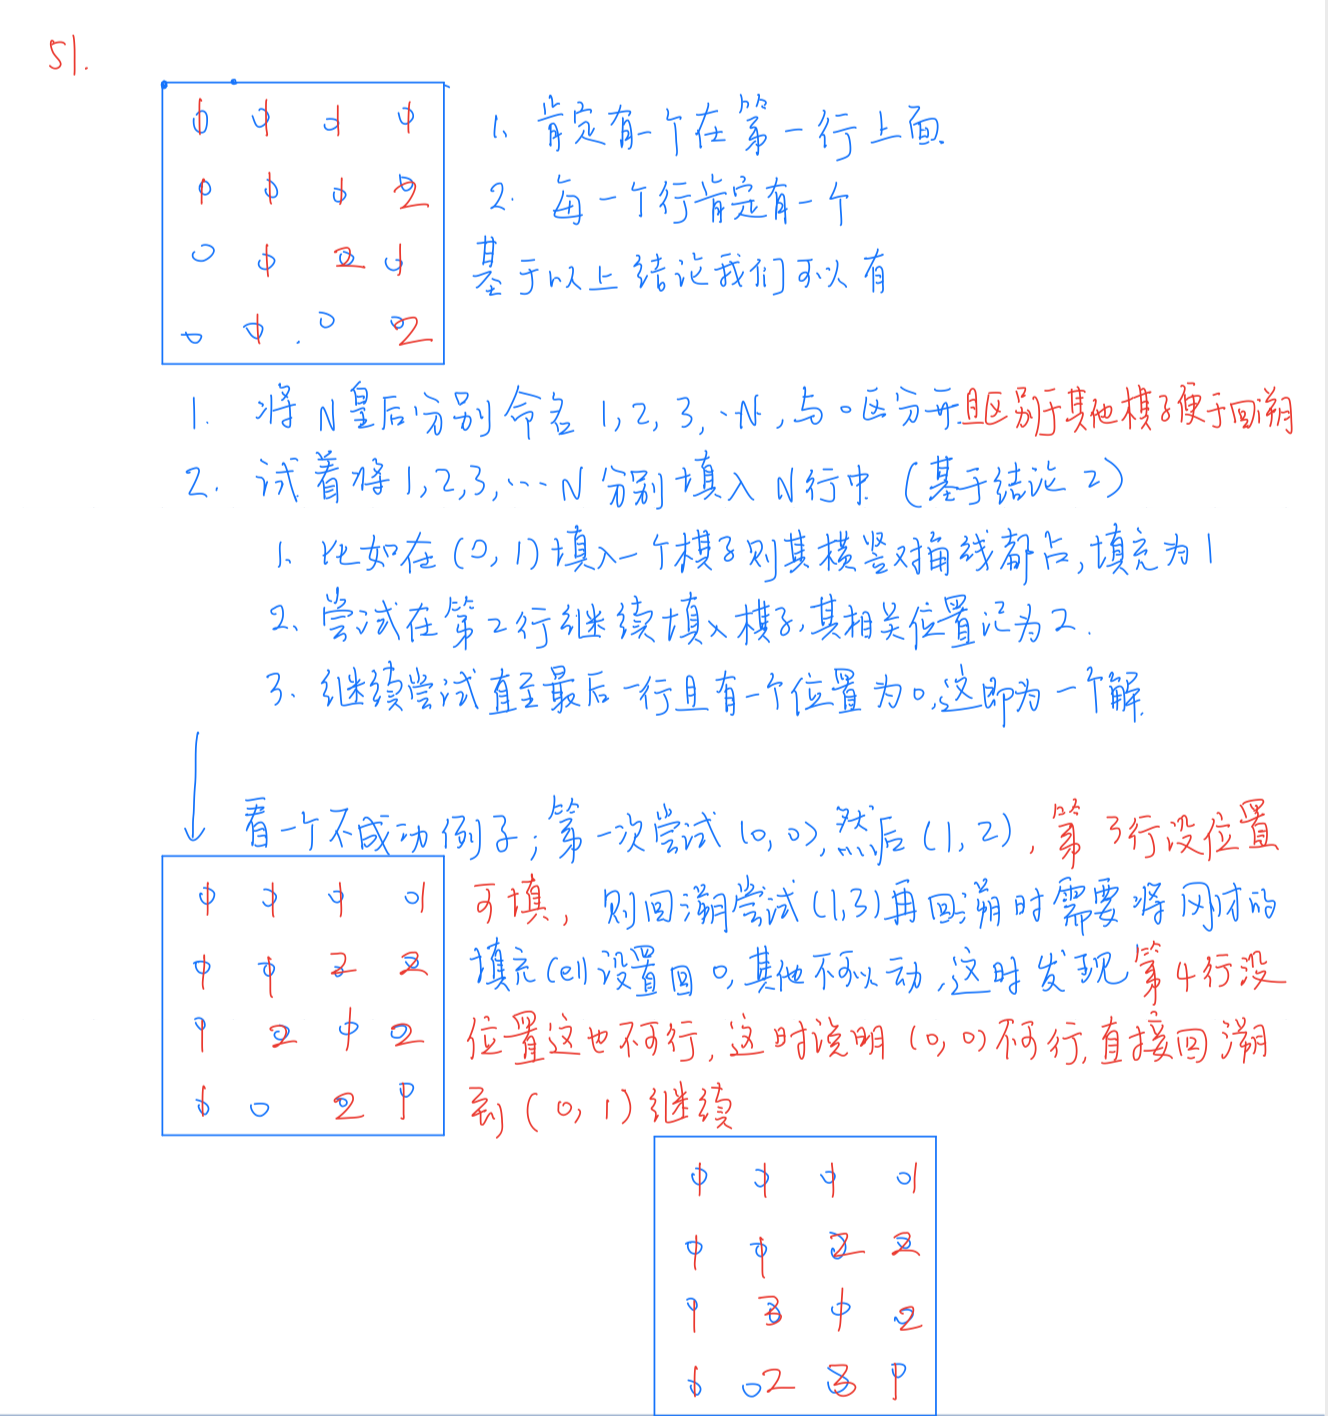 51.
1 1 1 1
1 1 1 2
0 1 2 1
0 1 0 2
1. 肯定有一个在第一行上面
2. 每一个行肯定有一个
基于以上结论我们可以有
1. 将N皇后分别命名 1,2,3,..N,与0区分开且区别于其他棋子便于回溯
2. 试着将1,2,3,...N 分别填入N行中 (基于结论2)
1. 比如在(0,1)填入一个棋子则其横竖对角线都占,填充为1
2. 尝试在第2行继续填入棋子,其相关位置记为2.
3. 继续尝试直至最后一行且有一个位置为0,这即为一个解
看一个不成功例子;第一次尝试(0,0),然后(1,2),第3行没位置
可填,则回溯尝试(1,3)再回溯时需要将刚才的
填充Cell设置回0,其他不可以动,这时发现第4行没
位置这也不可行,这时说明(0,0)不可行,直接回溯
到(0,1)继续
1 1 1 1
1 1 2 2
1 2 1 2
1 0 2 1
1 1 1 1
1 1 2 2
1 3 1 2
1 2 3 1